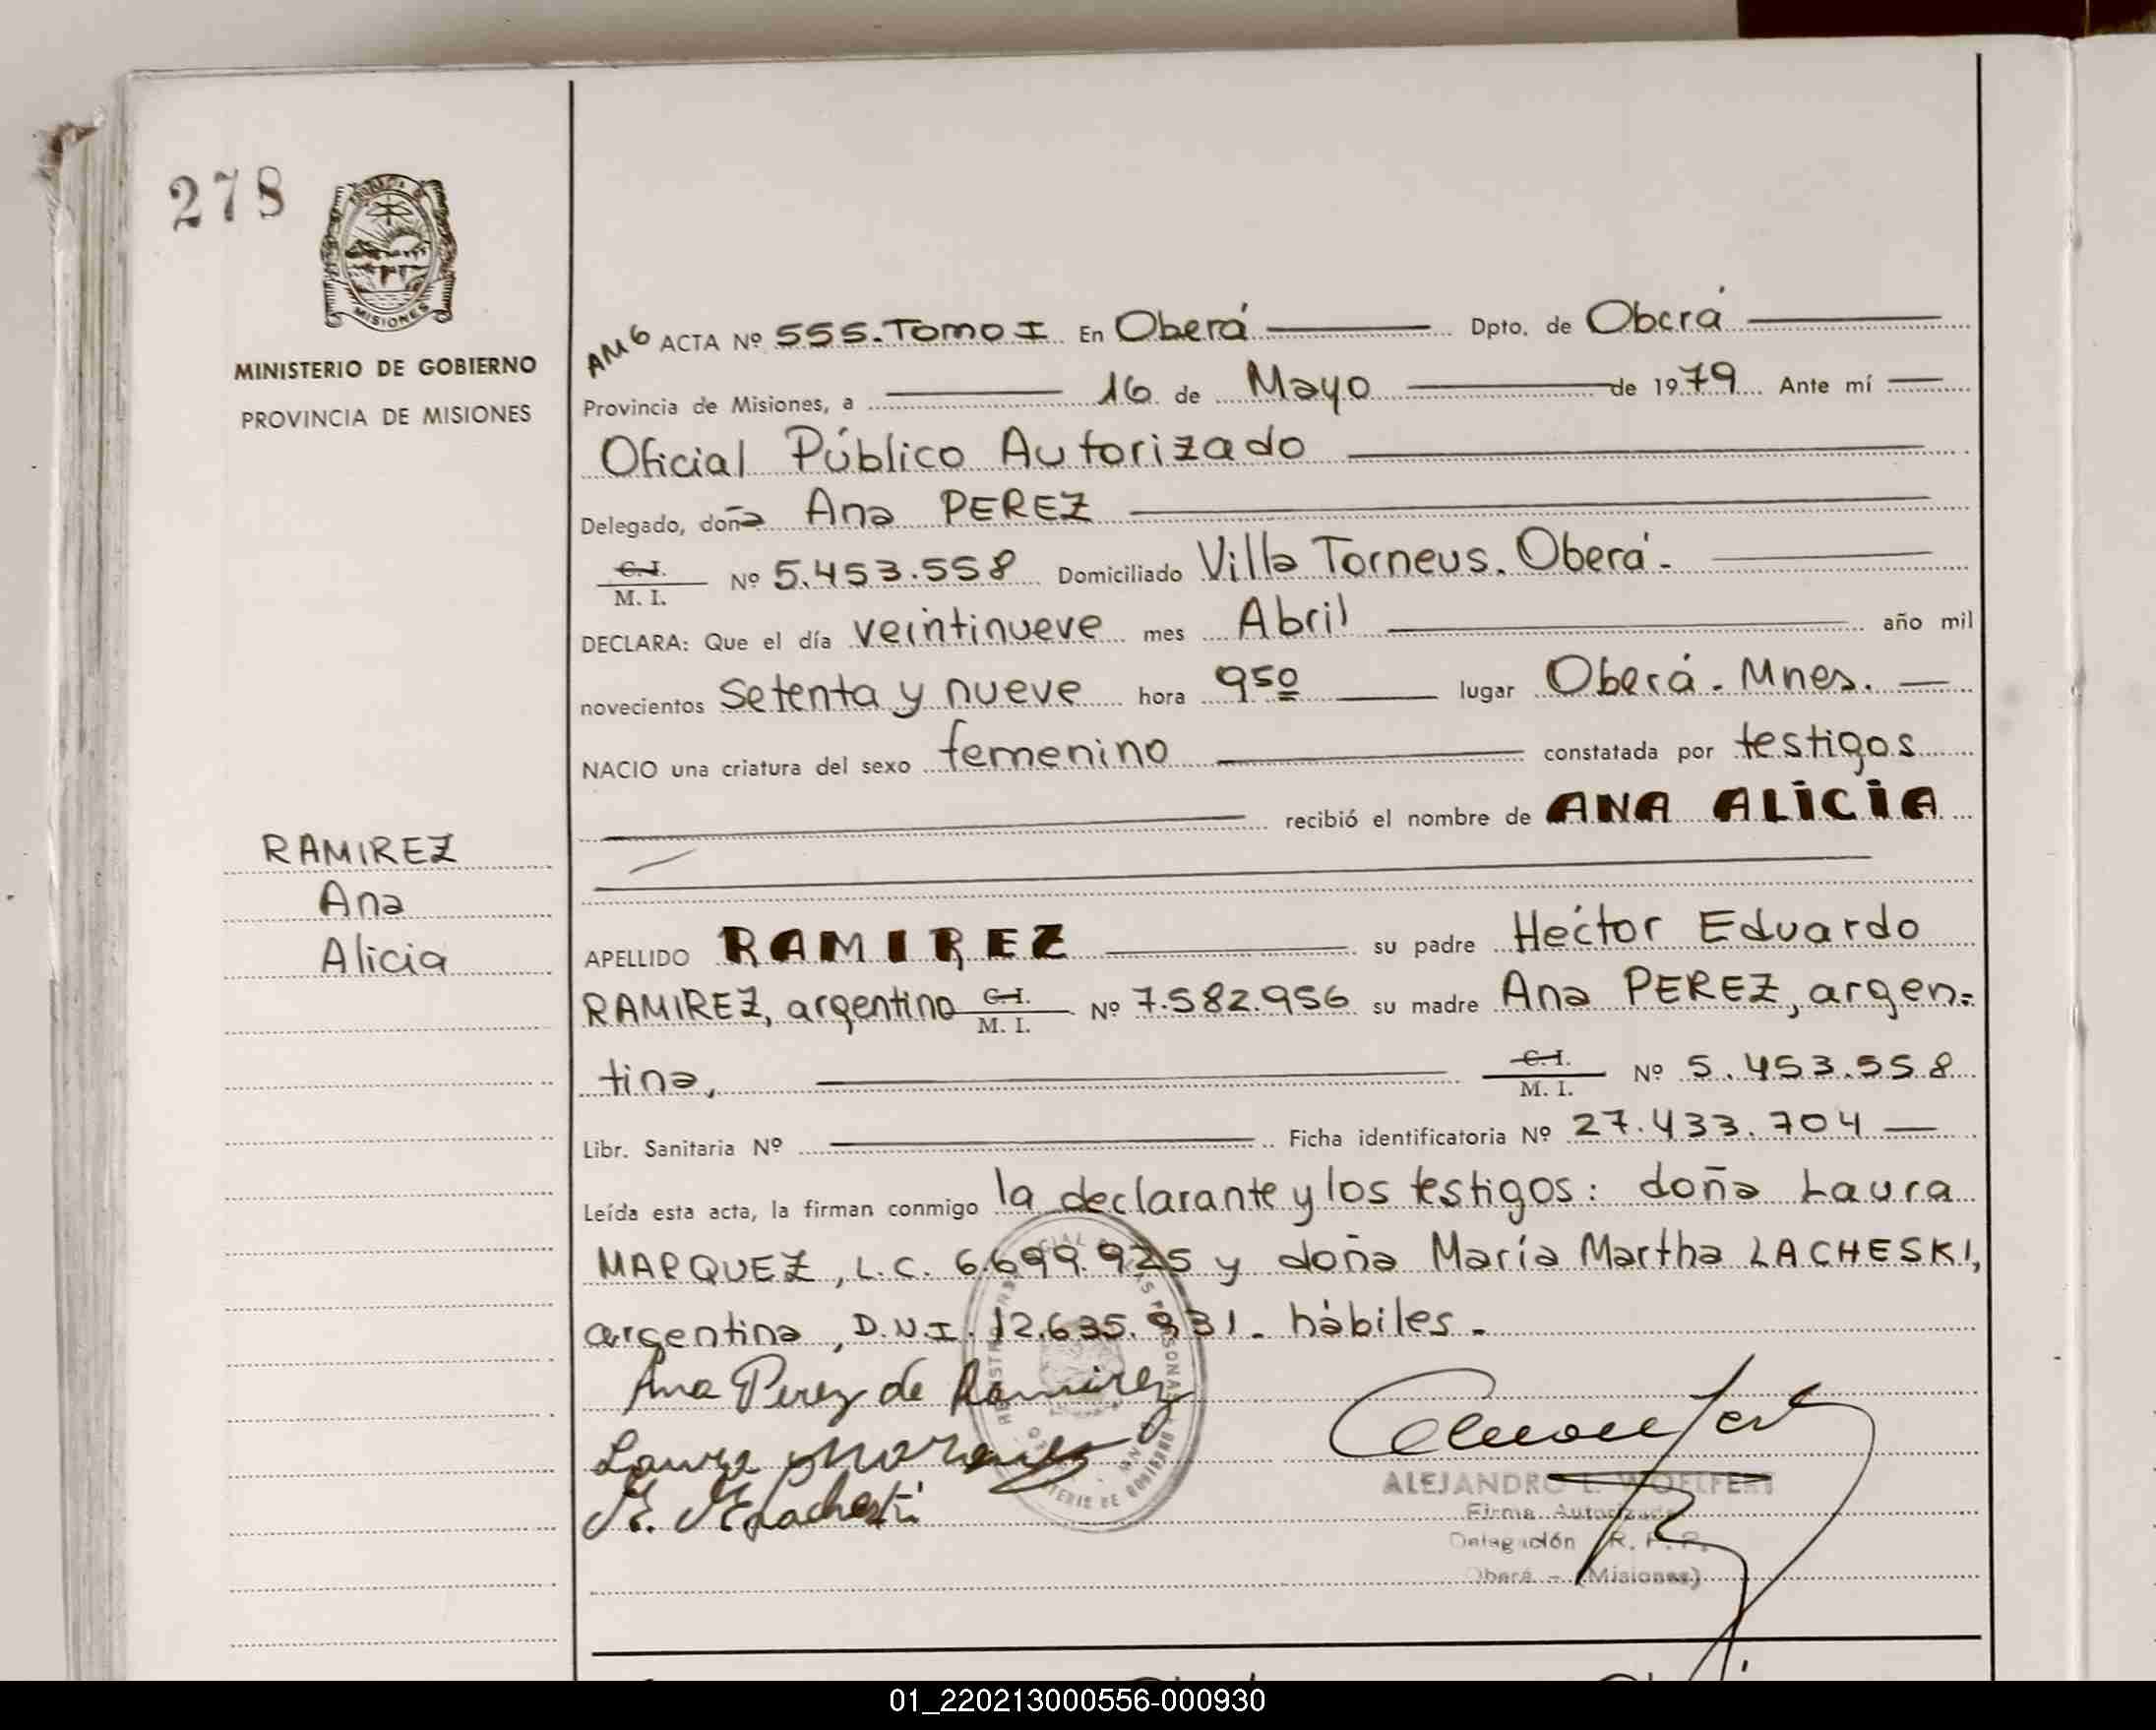 278
MISIONES
MINISTERIO DE GOBIERNO
PROVINCIA DE MISIONES
RAMIREZ
Ana
Alicia
AM6 ACTA Nº 555. Tomo I En Oberá Dpto. de Oberá
Provincia de Misiones, a 16 de Mayo de 1979 Ante mí
Oficial Público Autorizado
Delegado, doña Ana PEREZ
C.I.
M. I. Nº 5.453.558 Domiciliado Villa Torneus. Oberá.
DECLARA: Que el día veintinueve mes Abril año mil
novecientos setenta y nueve hora 9 50 lugar Oberá. Mnes.
NACIO una criatura del sexo femenino constatada por testigos
recibió el nombre de ANA ALICIA
APELLIDO RAMIREZ su padre Héctor Eduardo
RAMIREZ, argentino C.I. M. I. Nº 7.582.956 su madre Ana PEREZ, argen=
tina, C.I. M. I. Nº 5.453.558
Libr. Sanitaria Nº Ficha identificatoria Nº 27.433.704
Leída esta acta, la firman conmigo la declarante y los testigos: doña Laura
MARQUEZ, L.C. 6.699.925 y doña María Martha LACHESKI,
argentina, D.N.I. 12.635.931. hábiles.
Ana Perez de Ramirez
Laura Marquez
ALEJANDRO L. WOELFERT
Firma Autorizada
Delegación R. P. P.
Oberá - (Misiones)
01_220213000556-000930